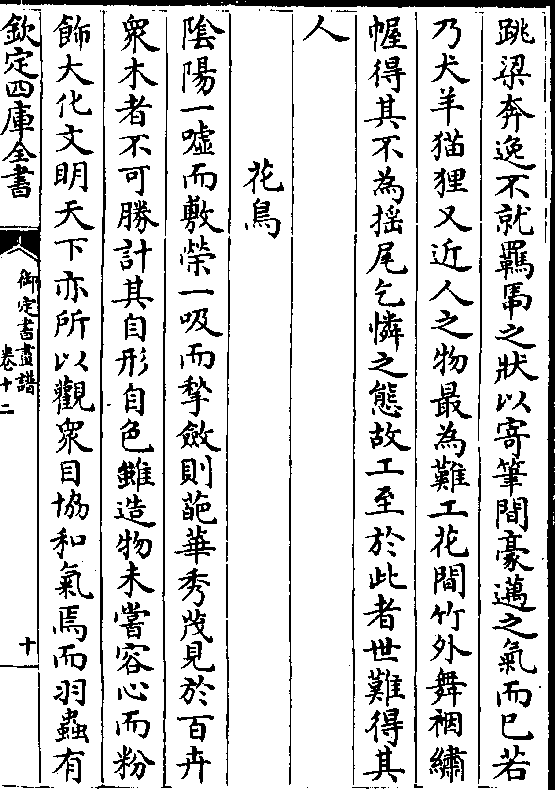 跳梁奔逸不就羈馽之狀以寄筆間豪邁之氣而已若
乃犬羊猫狸又近人之物最為難工花間竹外舞裀繡
幄得其不為揺尾乞憐之態故工至於此者世難得其
人
花鳥
陰陽一嘘而敷榮一吸而揫斂則葩華秀茂見於百卉
衆木者不可勝計其自形自色雖造物未嘗容心而粉
飾大化文明天下亦所以觀衆目協和氣焉而羽蟲有
欽定四庫全書
御定書畫譜
卷十二
十